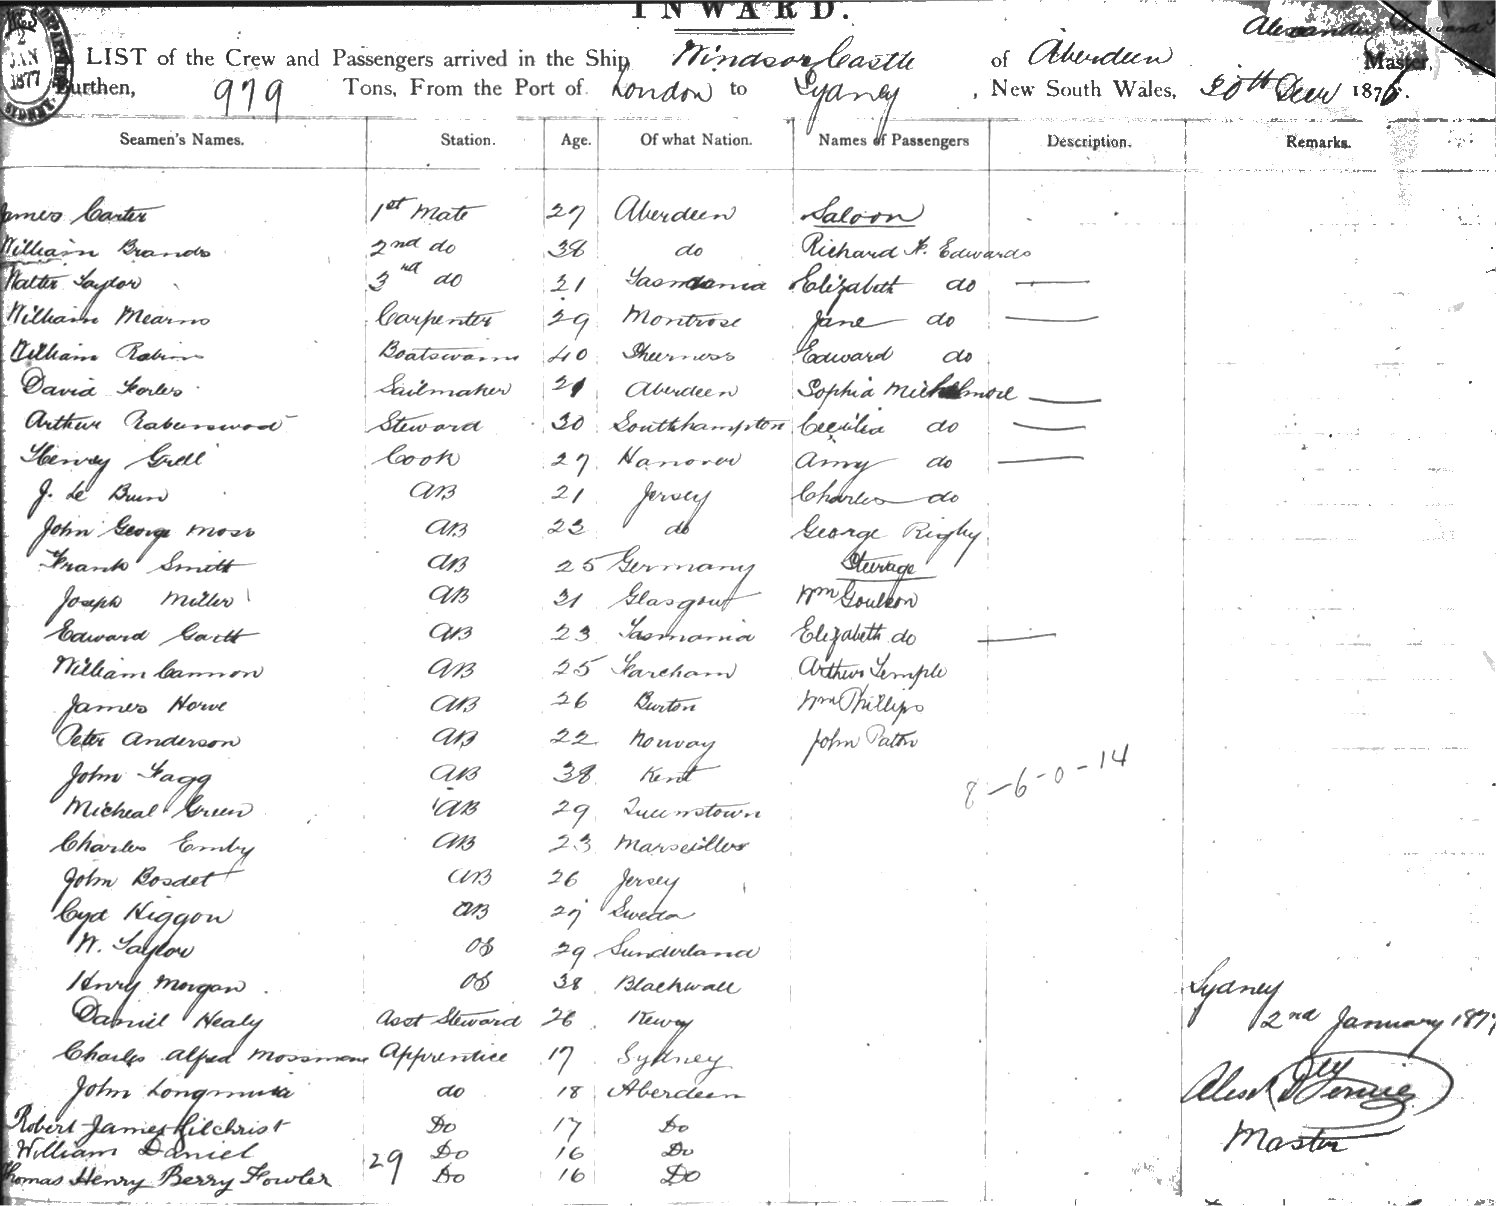 INWARD.
Alexander
LIST of the Crew and Passengers arrived in the Ship Windsor Castle of Aberdeen Master,
Burthen, 979 Tons, From the Port of London to Sydney, New South Wales, 30th Decr 1876.
2 JAN 1877 SYDNEY
Seamen's Names. Station. Age. Of what Nation. Names of Passengers Description. Remarks.
James Carter 1st Mate 27 Aberdeen Saloon
William Brands 2nd do 38 do Richard Edwards
Walter Taylor 3rd do 21 Tasmania Elizabeth do —
William Mearns Carpenter 29 Montrose Jane do —
William Robins Boatswain 40 Sheerness Edward do
David Forbes Sailmaker 21 Aberdeen Sophia Michelmore —
Arthur Steward 30 Southhampton Cecilia do —
Henry Grell Cook 27 Hanover Amy do —
J. Le Brun AB 21 Jersey Charles do
John George Moss AB 22 do George Rigby
Frank Smith AB 25 Germany Steerage
Joseph Miller AB 31 Glasgow Wm Goulson
Edward Garth AB 23 Tasmania Elizabeth do —
William Cannon AB 25 Fareham Arthur Temple
James Howe AB 26 Burton Wm Phillips
Peter Anderson AB 22 Norway John Paton
John Fagg AB 38 Kent
8-6-0-14
Micheal Green AB 29 Queenstown
Charles Emby AB 23 Marseilles
John Bosdet AB 26 Jersey
Higgon AB 27 Sweden
W. Taylor OS 29 Sunderland
Henry Morgan OS 38 Blackwall Sydney
Daniel Healy Asst Steward 26 2nd January 1877
Charles Alfred Mossmane Apprentice 17 Sydney
John Longmuir do 18 Aberdeen Alexr
Robert James Gilchrist Do 17 Do
William Daniel Do 16 Do Master
Thomas Henry Berry Fowler 29 Do 16 Do